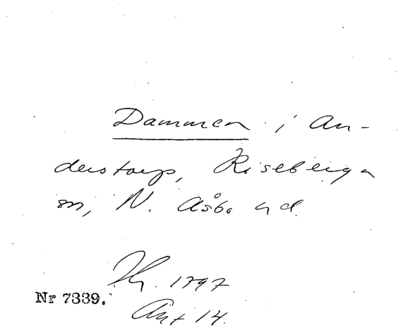 Dammen i An-
derstorp, Riseberga
sn, N. Åsbo hd.
Hg. 1797
Akt 14.
Nr 7339.